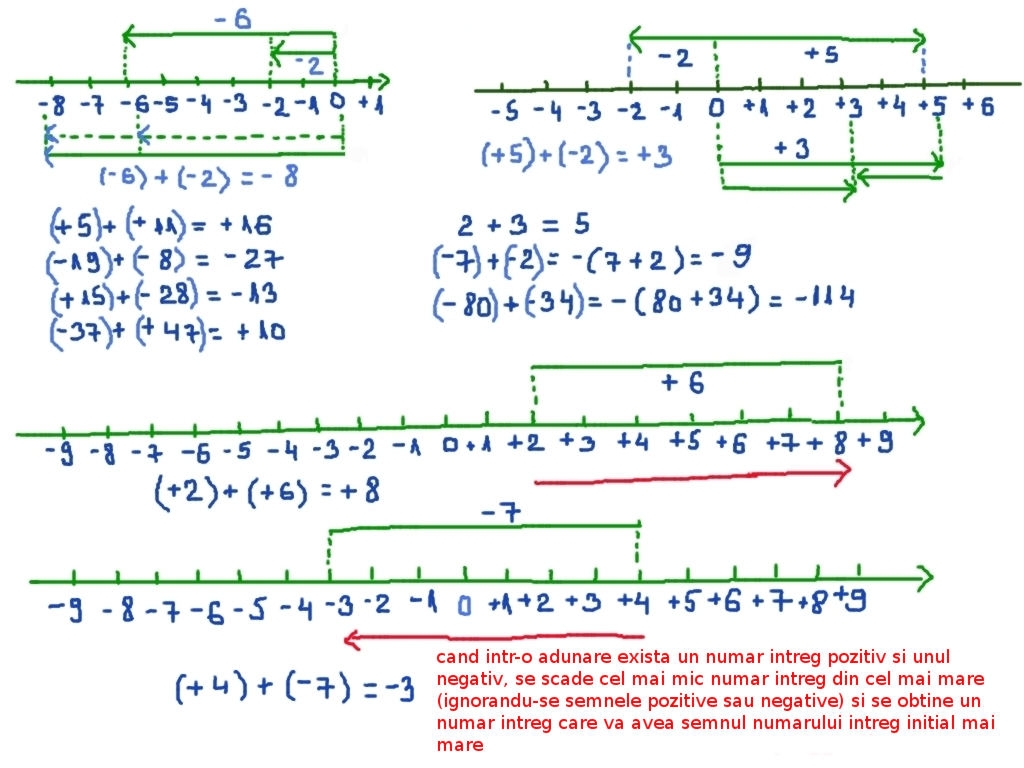 -6
-2
-8 -7 -6 -5 -4 -3 -2 -1 0 +1
(-6) + (-2) = - 8
-2 +5
-5 -4 -3 -2 -1 0 +1 +2 +3 +4 +5 +6
+3
(+5) + (-2) = +3
(+5) + (+ 11) = +16
(-19) + (- 8) = - 27
(+15) + (- 28) = - 13
(-37) + (+ 47) = + 10
2 + 3 = 5
(-7) + (-2) = - (7 + 2) = - 9
(- 80) + (-34) = - (80 + 34) = -114
+ 6
-9 -8 -7 -6 -5 -4 -3 -2 -1 0 +1 +2 +3 +4 +5 +6 +7 + 8 +9
(+2) + (+6) = + 8
-7
-9 -8 -7 -6 -5 -4 -3 -2 -1 0 +1 +2 +3 +4 +5 +6 +7 +8 +9
(+4) + (-7) = -3
cand intr-o adunare exista un numar intreg pozitiv si unul
negativ, se scade cel mai mic numar intreg din cel mai mare
(ignorandu-se semnele pozitive sau negative) si se obtine un
numar intreg care va avea semnul numarului intreg initial mai
mare